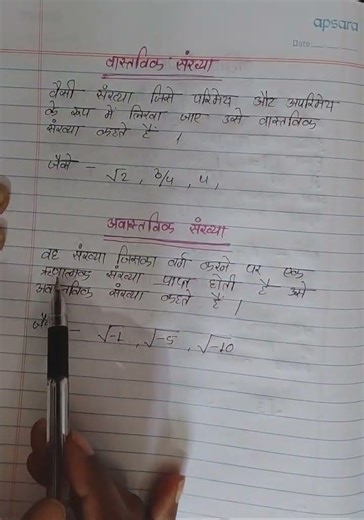 apsara
Date
वास्तविक संख्या
वैसी संख्या जिसे परिमेय और अपरिमेय
के रूप में लिखा जाए उसे वास्तविक
संख्या कहते हैं ।
जैसे - √2, 3/4, 4,
अवास्तविक संख्या
वह संख्या जिसका वर्ग करने पर एक
ऋणात्मक संख्या प्राप्त होती है उसे
अवास्तविक संख्या कहते हैं ।
- √-1, √-5, √-10